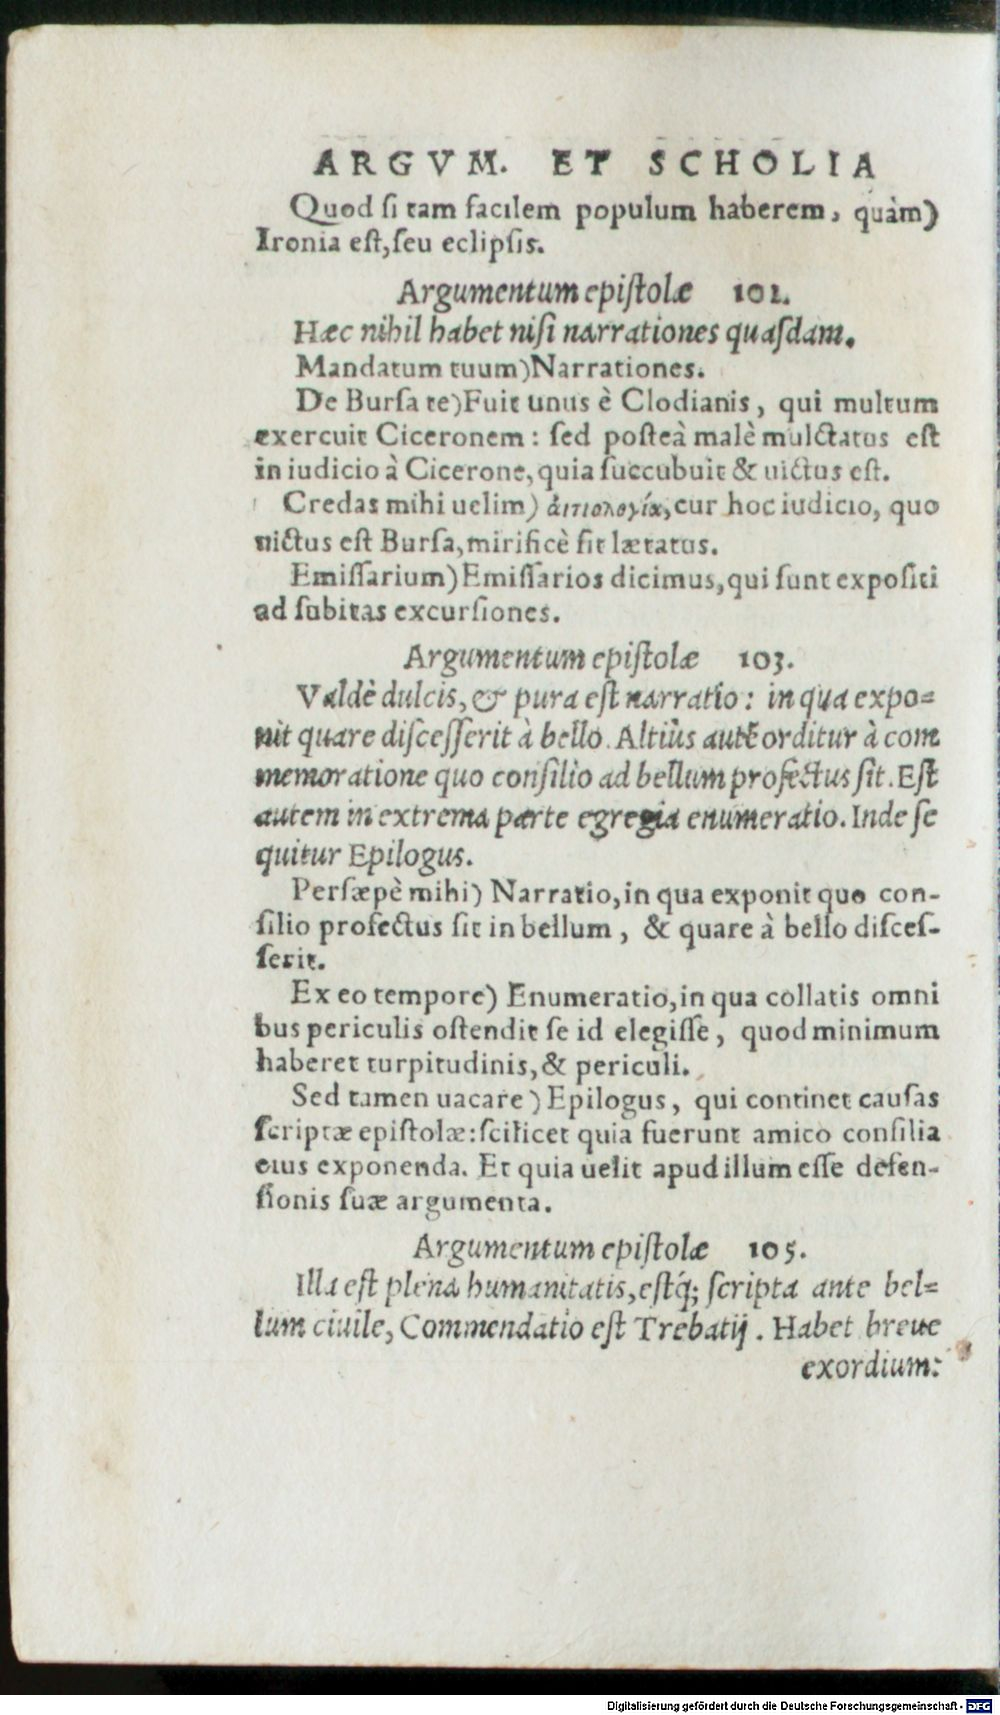 ARGVM. ET SCHOLIA
Quod ſi tam facilem populum haberem, quàm)
Ironia eſt, ſeu eclipſis.
Argumentum epiſtolæ 101.
Hæc nihil habet niſi narrationes quaſdam.
Mandatum tuum) Narrationes.
De Burſa te) Fuit unus è Clodianis, qui multum
exercuit Ciceronem: ſed poſteà malè mulctatus eſt
in iudicio à Cicerone, quia ſuccubuit & uictus eſt.
Credas mihi uelim) ἀιτιολογία, cur hoc iudicio, quo
uictus eſt Burſa, mirificè ſit lætatus.
Emiſſarium) Emiſſarios dicimus, qui ſunt expoſiti
ad ſubitas excurſiones.
Argumentum epiſtolæ 103.
Valdè dulcis, & pura eſt narratio: in qua expo=
nit quare diſceſſerit à bello. Altiùs autẽ orditur à com
memoratione quo conſilio ad bellum profectus ſit. Eſt
autem in extrema parte egregia enumeratio. Inde ſe
quitur Epilogus.
Perſæpè mihi) Narratio, in qua exponit quo con-
ſilio profectus ſit in bellum, & quare à bello diſceſ-
ſerit.
Ex eo tempore) Enumeratio, in qua collatis omni
bus periculis oſtendit ſe id elegiſſe, quod minimum
haberet turpitudinis, & periculi.
Sed tamen uacare) Epilogus, qui continet cauſas
ſcriptæ epiſtolæ: ſcilicet quia fuerunt amico conſilia
eius exponenda. Et quia uelit apud illum eſſe defen-
ſionis ſuæ argumenta.
Argumentum epiſtolæ 105.
Illa eſt plena humanitatis, eſtq́; ſcripta ante bel=
lum ciuile, Commendatio eſt Trebatij. Habet breue
exordium:
Digitalisierung gefördert durch die Deutsche Forschungsgemeinschaft - DFG